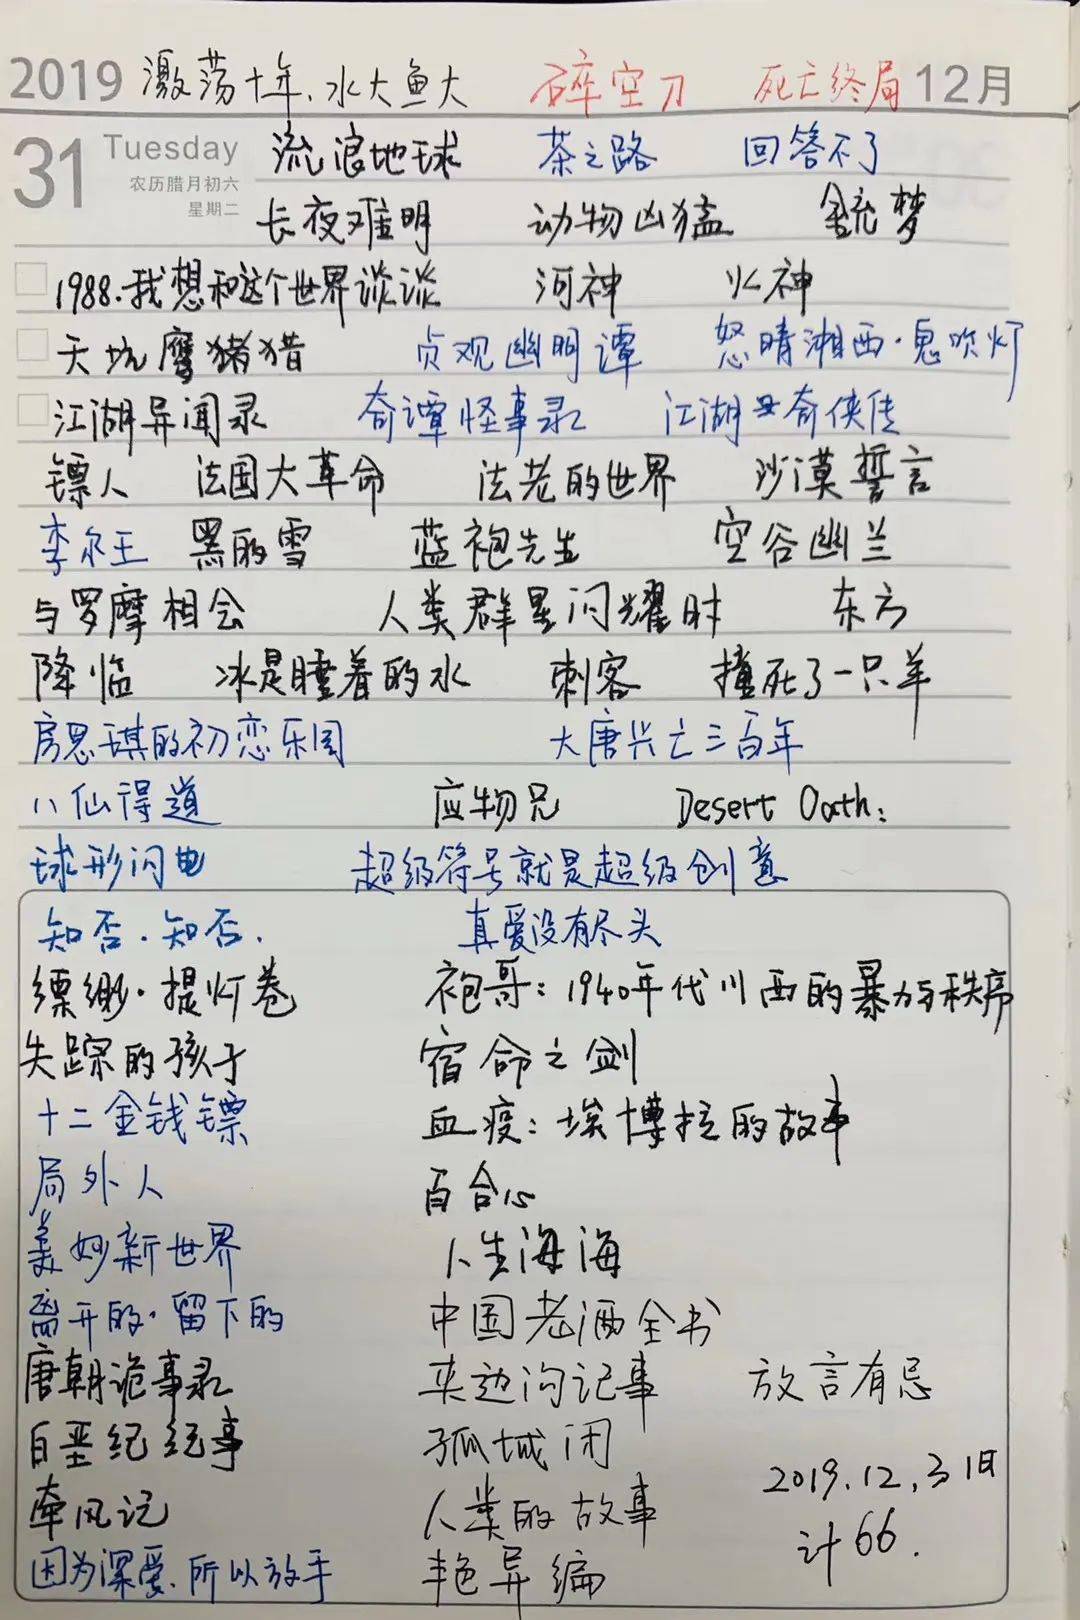 2019 激荡十年、水大鱼大 碎空刀 死亡终局 12月
31 Tuesday 流浪地球 茶之路 回答不了
农历腊月初六
星期二
长夜难明 动物凶猛 鎏梦
1988.我想和这个世界谈谈 河神 火神
天坑鹰猪猎 贞观幽明谭 怒晴湘西·鬼吹灯
江湖异闻录 奇谭怪事录 江湖奇侠传
镖人 法国大革命 法老的世界 沙漠誓言
李尔王 黑的雪 蓝袍先生 空谷幽兰
与罗摩相会 人类群星闪耀时 东方
降临 冰是睡着的水 刺客 撞死了一只羊
房思琪的初恋乐园 大唐兴亡三百年
八仙得道 应物兄 Desert Oath:
球形闪电 超级符号就是超级创意
知否.知否. 真爱没有尽头
缥缈·提灯卷 袍哥:1940年代川西的暴力与秩序
失踪的孩子 宿命之剑
十二金钱镖 血疫:埃博拉的故事
局外人 百合心
美妙新世界 人生海海
离开的·留下的 中国老酒全书
唐朝诡事录 夹边沟记事 放言有忌
白垩纪纪事 孤城闭
牵风记 人类的故事 2019.12.31日
因为深爱.所以放手 艳异编 计66.